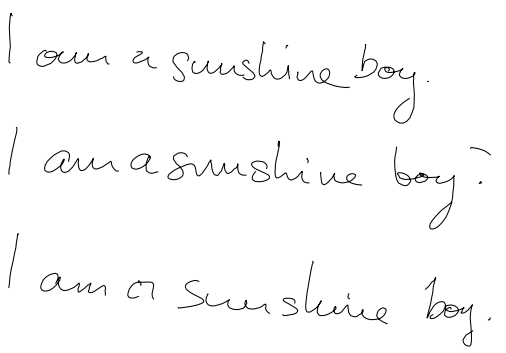 I am a sunshine boy.
I am a sunshine boy?
I am a sunshine boy.